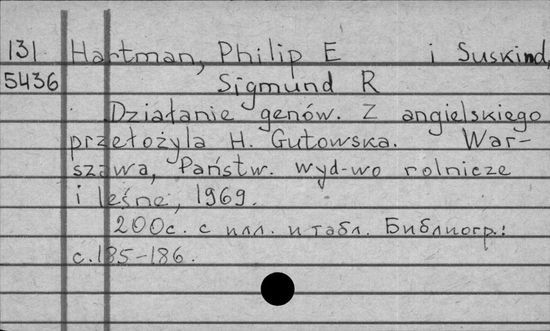 131 Hartman, Philip E i Suskind,
5436 Sigmund R
Działanie genów. Z angielskiego
przełożyla H. Gutowska. War-
szawa, Państw. wyd-wo rolnicze
i leśne, 1969.
200с. с илл. и табл. Библиогр.:
с.185-186.